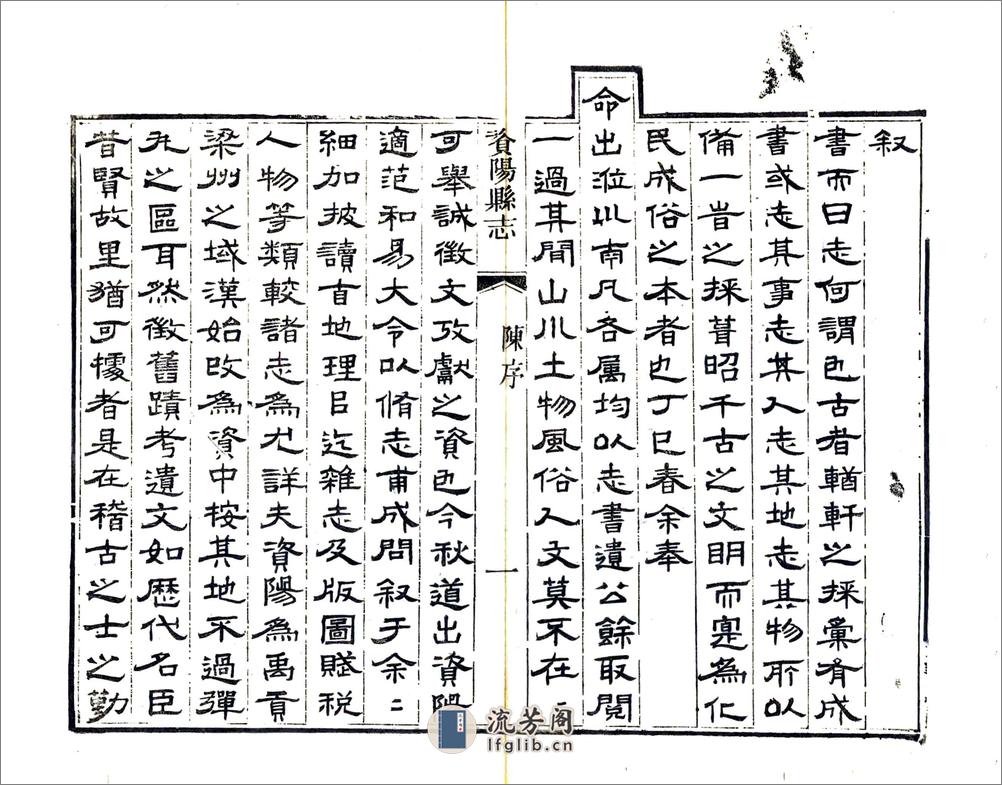 叙
書而曰志何謂也古者輶軒之採彙有成
書或志其事志其人志其地志其物所以
備一昔之採葺昭千古之文明而寔為化
民成俗之本者也丁巳春余奉
命出涖川南凡各属均以志書遺公餘取閱
一過其間山川土物風俗人文莫不在二
資陽縣志
陳序
一
可舉誠徵文攷獻之資也今秋道出資陽
適范和易大令以脩志甫成問叙于余二
細加披讀首地理㠯迄雜志及版圖賦税
人物等類較諸志為尤詳夫資陽為禹貢
梁州之域漢始改為資中按其地不過彈
丸之區耳然徵舊蹟考遺文如歷代名臣
昔賢故里猶可據者是在稽古之士之勤
流芳阁
lfglib.cn